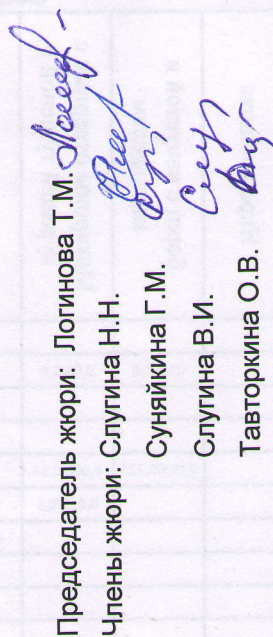 Председатель жюри: Логинова Т.М.
Члены жюри: Слугина Н.Н.
Суняйкина Г.М.
Слугина В.И.
Тавторкина О.В.